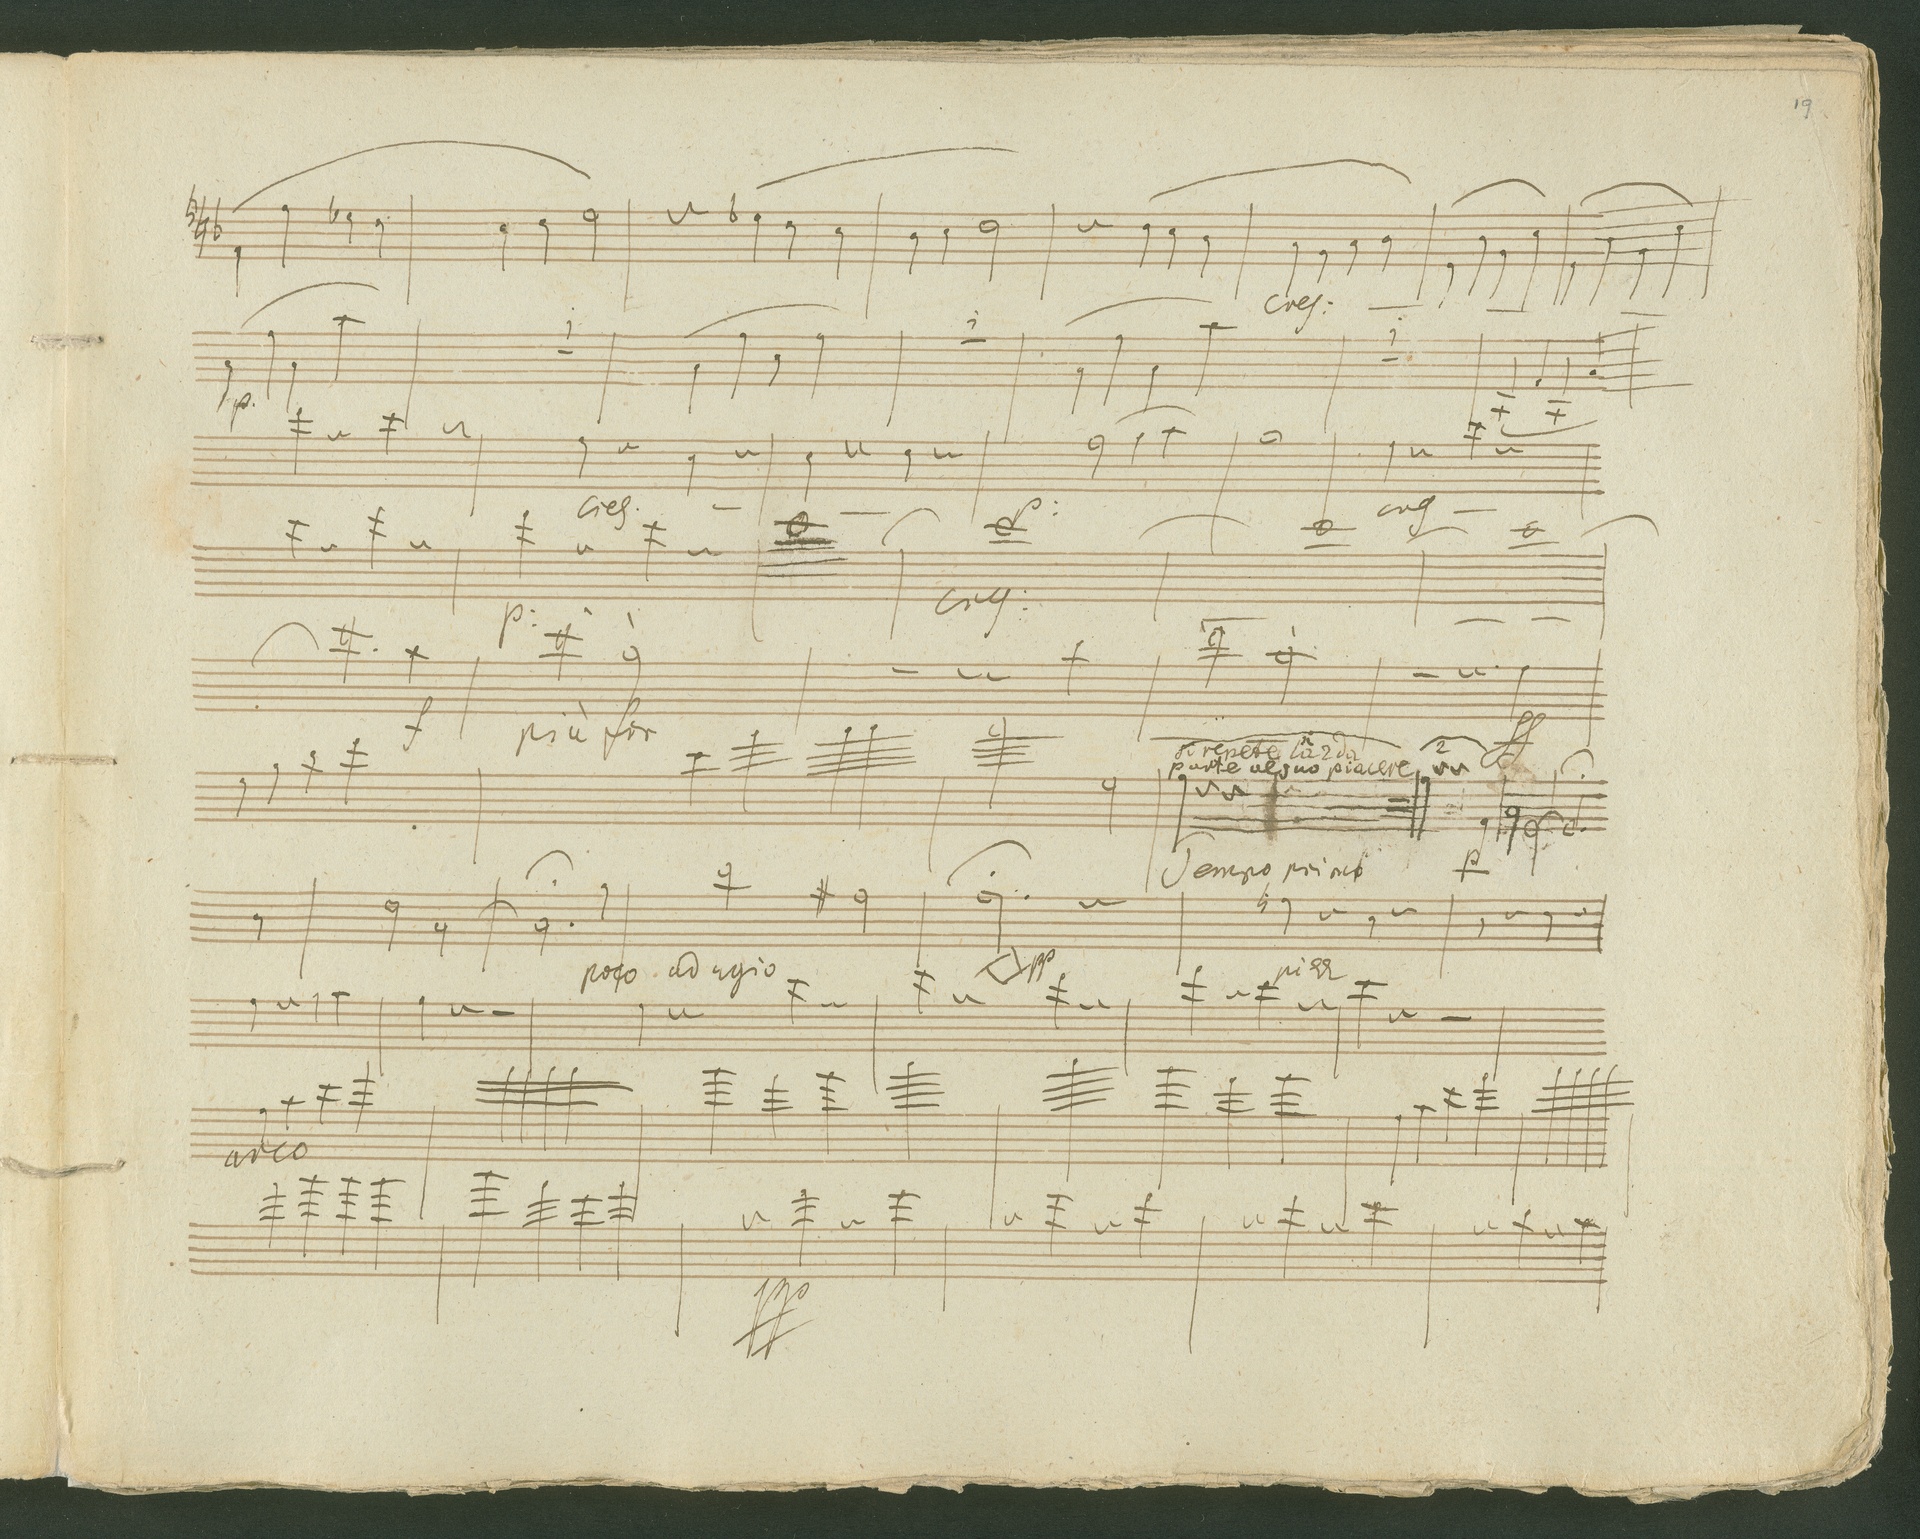 19
cres:
p.
cres. p: cres
p: cres:
f più for ff
si repete la 2da 2
parte al suo piacere
Tempo primo p
poco adagio pp pizz
arco
ffo